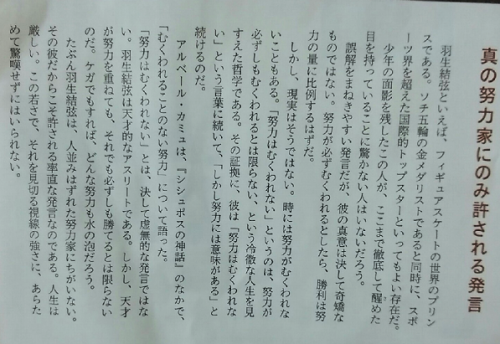 真の努力家にのみ許される発言
羽生結弦といえば、フィギュアスケートの世界のプリン
スである。ソチ五輪の金メダリストであると同時に、スポ
ーツ界を超えた国際的トップスターといってもよい存在だ。
少年の面影を残したこの人が、ここまで徹底して醒めた
目を持っていることに驚かない人はいないだろう。
誤解をまねきやすい発言だが、彼の真意は決して奇矯な
ものではない。努力が必ずむくわれるとしたら、勝利は努
力の量に比例するはずだ。
しかし、現実はそうではない。時には努力がむくわれな
いこともある。「努力はむくわれない」というのは、努力が
必ずしもむくわれるとは限らない、という冷徹な人生を見
すえた哲学である。その証拠に、彼は「努力はむくわれな
い」という言葉に続いて、「しかし努力には意味がある」と
続けるのだ。
アルベール・カミュは、『シシュポスの神話』のなかで、
「むくわれることのない努力」について語った。
「努力はむくわれない」とは、決して虚無的な発言ではな
い。羽生結弦は天才的なアスリートである。しかし、天才
が努力を重ねても、それでも必ずしも勝てるとは限らない
のだ。ケガでもすれば、どんな努力も水の泡だろう。
たぶん羽生結弦は、人並みはずれた努力家にちがいない。
その彼だからこそ許される率直な発言なのである。人生は
厳しい。この若さで、それを見切る視線の強さに、あらた
めて驚嘆せずにはいられない。